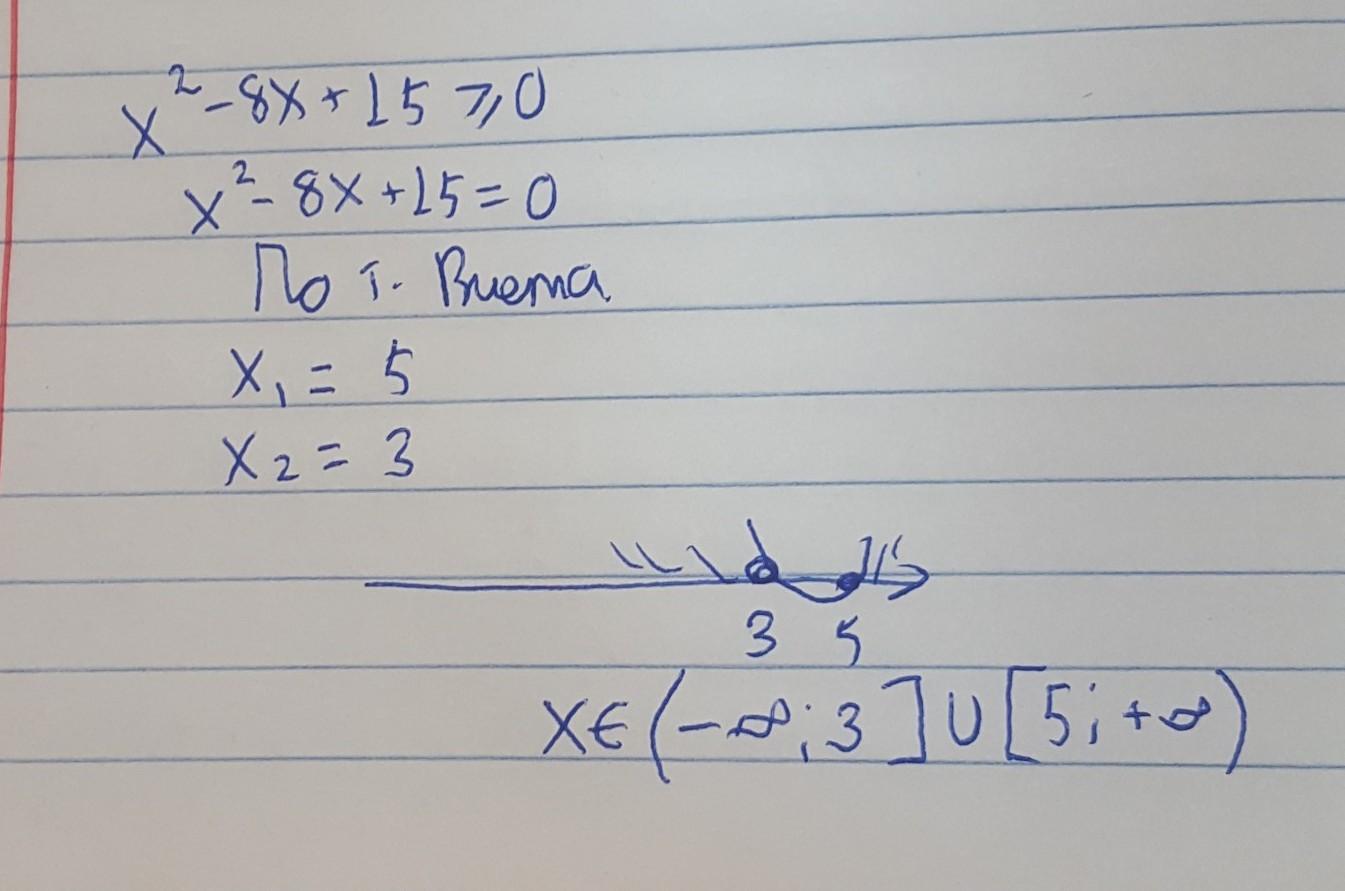 x² - 8x + 15 ⩾ 0
x² - 8x + 15 = 0
По т. Виета
x₁ = 5
x₂ = 3
3 5
x∈(-∞; 3]∪[5; +∞)